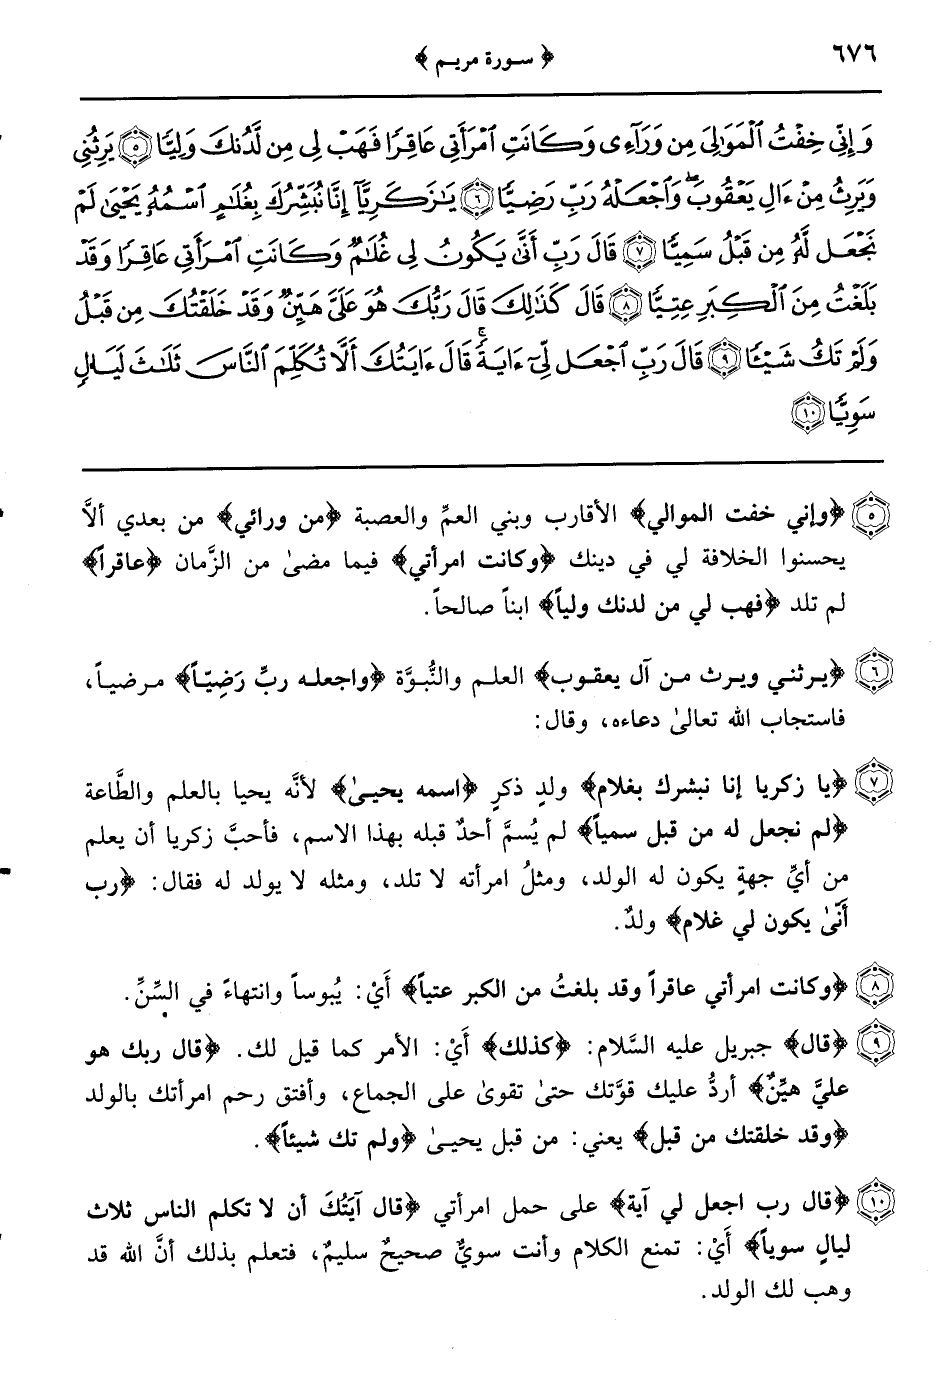 ٦٧٦
﴿ سورة مريم ﴾
وَإِنِّي خِفْتُ ٱلْمَوَٰلِىَ مِن وَرَآءِى وَكَانَتِ ٱمْرَأَتِى عَاقِرًا فَهَبْ لِى مِن لَّدُنكَ وَلِيًّا ٥ يَرِثُنِى
وَيَرِثُ مِنْ ءَالِ يَعْقُوبَ ۖ وَٱجْعَلْهُ رَبِّ رَضِيًّا ٦ يَٰزَكَرِيَّآ إِنَّا نُبَشِّرُكَ بِغُلَٰمٍ ٱسْمُهُۥ يَحْيَىٰ لَمْ
نَجْعَل لَّهُۥ مِن قَبْلُ سَمِيًّا ٧ قَالَ رَبِّ أَنَّىٰ يَكُونُ لِى غُلَٰمٌ وَكَانَتِ ٱمْرَأَتِى عَاقِرًا وَقَدْ
بَلَغْتُ مِنَ ٱلْكِبَرِ عِتِيًّا ٨ قَالَ كَذَٰلِكَ قَالَ رَبُّكَ هُوَ عَلَىَّ هَيِّنٌ وَقَدْ خَلَقْتُكَ مِن قَبْلُ
وَلَمْ تَكُ شَيْـًٔا ٩ قَالَ رَبِّ ٱجْعَل لِّىٓ ءَايَةً ۚ قَالَ ءَايَتُكَ أَلَّا تُكَلِّمَ ٱلنَّاسَ ثَلَٰثَ لَيَالٍ
سَوِيًّا ١٠
٥ ﴿وإني خفت الموالي﴾ الأقارب وبني العمِّ والعصبة ﴿من ورائي﴾ من بعدي ألاَّ
يحسنوا الخلافة لي في دينك ﴿وكانت امرأتي﴾ فيما مضىٰ من الزَّمان ﴿عاقراً﴾
لم تلد ﴿فهب لي من لدنك ولياً﴾ ابناً صالحاً.
٦ ﴿يرثني ويرث من آل يعقوب﴾ العلم والنُّبوَّة ﴿واجعله ربِّ رَضِيّاً﴾ مرضياً،
فاستجاب الله تعالىٰ دعاءه، وقال:
٧ ﴿يا زكريا إنا نبشرك بغلام﴾ ولدٍ ذكرٍ ﴿اسمه يحيىٰ﴾ لأنَّه يحيا بالعلم والطَّاعة
﴿لم نجعل له من قبل سمياً﴾ لم يُسمَّ أحدٌ قبله بهذا الاسم، فأحبَّ زكريا أن يعلم
من أيِّ جهةٍ يكون له الولد، ومثلُ امرأته لا تلد، ومثله لا يولد له فقال: ﴿رب
أنّىٰ يكون لي غلام﴾ ولدٌ.
٨ ﴿وكانت امرأتي عاقراً وقد بلغتُ من الكبر عتياً﴾ أَيْ: يُبوساً وانتهاءً في السِّنِّ.
٩ ﴿قال﴾ جبريل عليه السَّلام: ﴿كذلك﴾ أَيْ: الأمر كما قيل لك. ﴿قال ربك هو
عليَّ هيِّنٌ﴾ أردُّ عليك قوَّتك حتىٰ تقوىٰ على الجماع، وأفتق رحم امرأتك بالولد
﴿وقد خلقتك من قبل﴾ يعني: من قبل يحيىٰ ﴿ولم تك شيئاً﴾.
١٠ ﴿قال رب اجعل لي آية﴾ على حمل امرأتي ﴿قال آيَتُكَ أن لا تكلم الناس ثلاث
ليالٍ سوياً﴾ أَيْ: تمنع الكلام وأنت سويٌّ صحيحٌ سليمٌ، فتعلم بذلك أنَّ الله قد
وهب لك الولد.